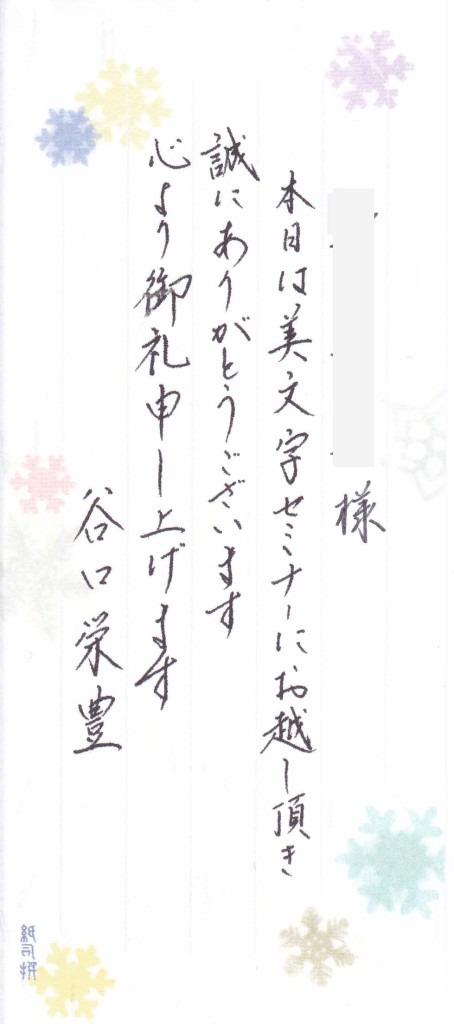 様
本日は美文字セミナーにお越し頂き
誠にありがとうございます
心より御礼申し上げます
谷口栄豊